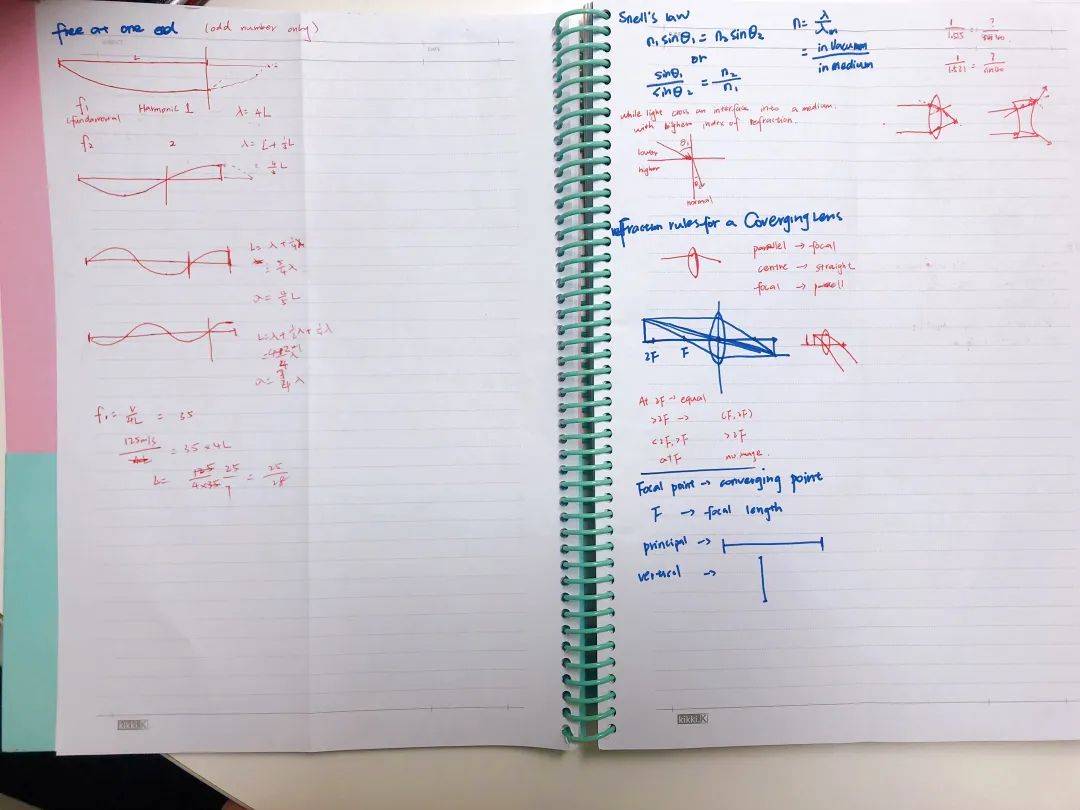 free at one end (odd number only)
DATE
L
f₁ Harmonic 1 λ = 4L
(fundamental
f₂ 2 λ = L + ⅓L
= 4/3 L
L = λ + ¼λ
= 5/4 λ
λ = 4/5 L
L = λ + ½λ + ¼λ
4
f₁ = V/4L = 35
125m/s = 35 × 4L
L = 125/4×35 25/7 = 25/28
kikki.K
Snell's law
n₁ sinθ₁ = n₂ sinθ₂
or
sinθ₁/sinθ₂ = n₂/n₁
n = λ/λm
= in Vacuum/in medium
1/1.525 = ?/sin40
1/1.521 = ?/sin40
while light cross an interface into a medium.
with highem index of refraction.
lower
higher
θ₁
θ
normal
refraction rules for a Coverging Lens
parallel → focal
centre → straight
focal →
2F F
At 2F → equal
>2F → (F, 2F)
<2F, >F >2F
at F no image.
Focal point → converging point
F → focal length
principal →
vertical →
kikki.K